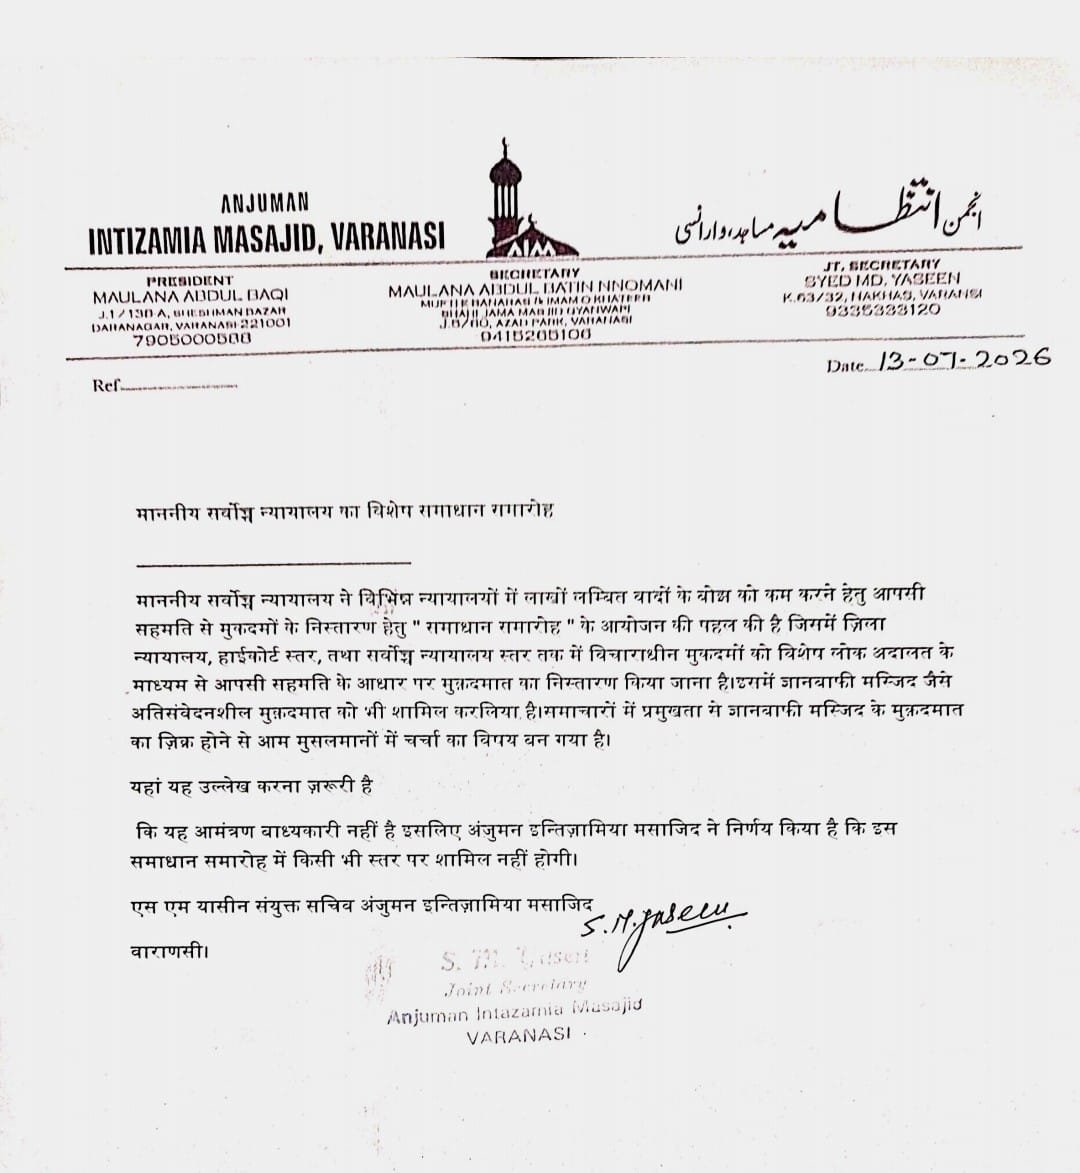 ANJUMAN
INTIZAMIA MASAJID, VARANASI
AIM
انجمن انتظامیہ مساجد، وارانسی
PRESIDENT
MAULANA ABDUL BAQI
J.1 / 130-A, SHESHMAN BAZAR
DARANAGAR, VARANASI-221001
7905000588
SECRETARY
MAULANA ABDUL BATIN NNOMANI
MUFTI E BANARAS & IMAM O KHATEEB
SHAHI JAMA MASJID GYANWAPI
J.6/ AZAD PARK, VARANASI
9415265106
JT. SECRETARY
SYED MD. YASEEN
K.63/32, NAKHAS, VARANSI
9335333120
Ref.
Date 13-07-2026
माननीय सर्वोच्च न्यायालय का विशेष समाधान समारोह
माननीय सर्वोच्च न्यायालय ने विभिन्न न्यायालयों में लाखों लम्बित वादों के बोझ को कम करने हेतु आपसी
सहमति से मुकदमों के निस्तारण हेतु " समाधान समारोह " के आयोजन की पहल की है जिसमें ज़िला
न्यायालय, हाईकोर्ट स्तर, तथा सर्वोच्च न्यायालय स्तर तक में विचाराधीन मुकदमों को विशेष लोक अदालत के
माध्यम से आपसी सहमति के आधार पर मुक़दमात का निस्तारण किया जाना है।इसमें ज्ञानवाफी मस्जिद जैसे
अतिसंवेदनशील मुक़दमात को भी शामिल करलिया है।समाचारों में प्रमुखता से ज्ञानवाफी मस्जिद के मुक़दमात
का ज़िक्र होने से आम मुसलमानों में चर्चा का विषय बन गया है।
यहां यह उल्लेख करना ज़रूरी है
कि यह आमंत्रण बाध्यकारी नहीं है इसलिए अंजुमन इन्तिज़ामिया मसाजिद ने निर्णय किया है कि इस
समाधान समारोह में किसी भी स्तर पर शामिल नहीं होगी।
एस एम यासीन संयुक्त सचिव अंजुमन इन्तिज़ामिया मसाजिद
S. M. Yaseen
वाराणसी।
S. M. Yaseen
Joint Secretary
Anjuman Intazamia Masajid
VARANASI